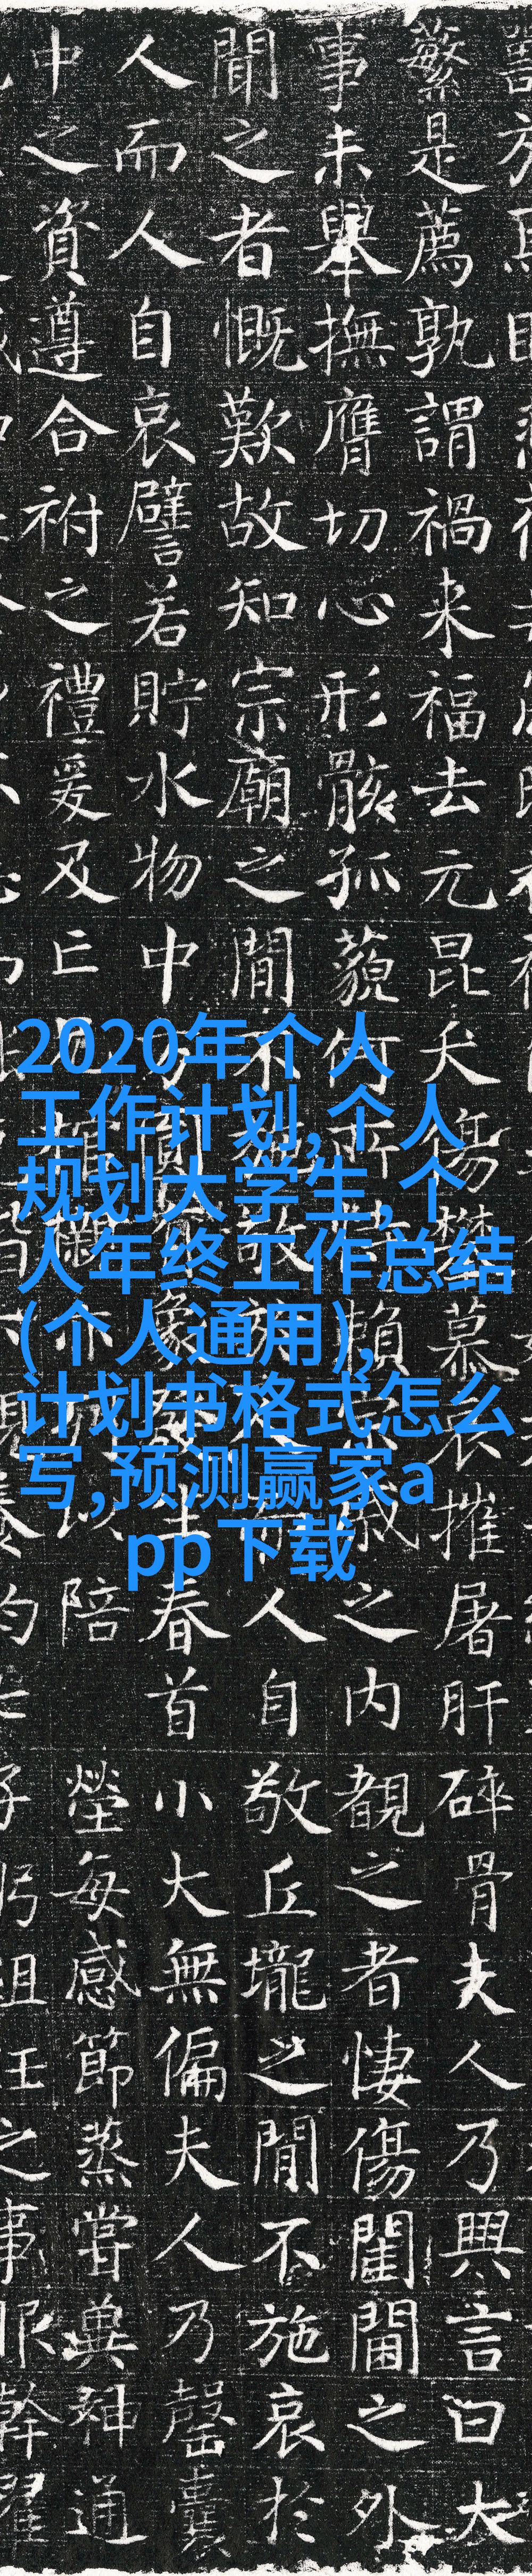 繁是薦孰謂禍来福去元昆夭傷攀慕哀摧屠肝碎骨夫人乃興言曰大
事未舉撫膺切心形骸孤藐何所頼之内覩之者悽傷閨閫之外
聞之者慨歎故知宗廟之間不敬人自敬丘壠之間不施哀於
人而人自哀譬若貯水物中圓象春首小大無偏夫人乃罄囊
中之資遵合祔之禮爰及亡櫬亦以陪塋每感節蒸嘗冀神通
2020年个人
工作计划,个人
规划大学生,个
人年终工作总结
(个人通用),
计划书格式怎么
写,预测赢家a
pp下载